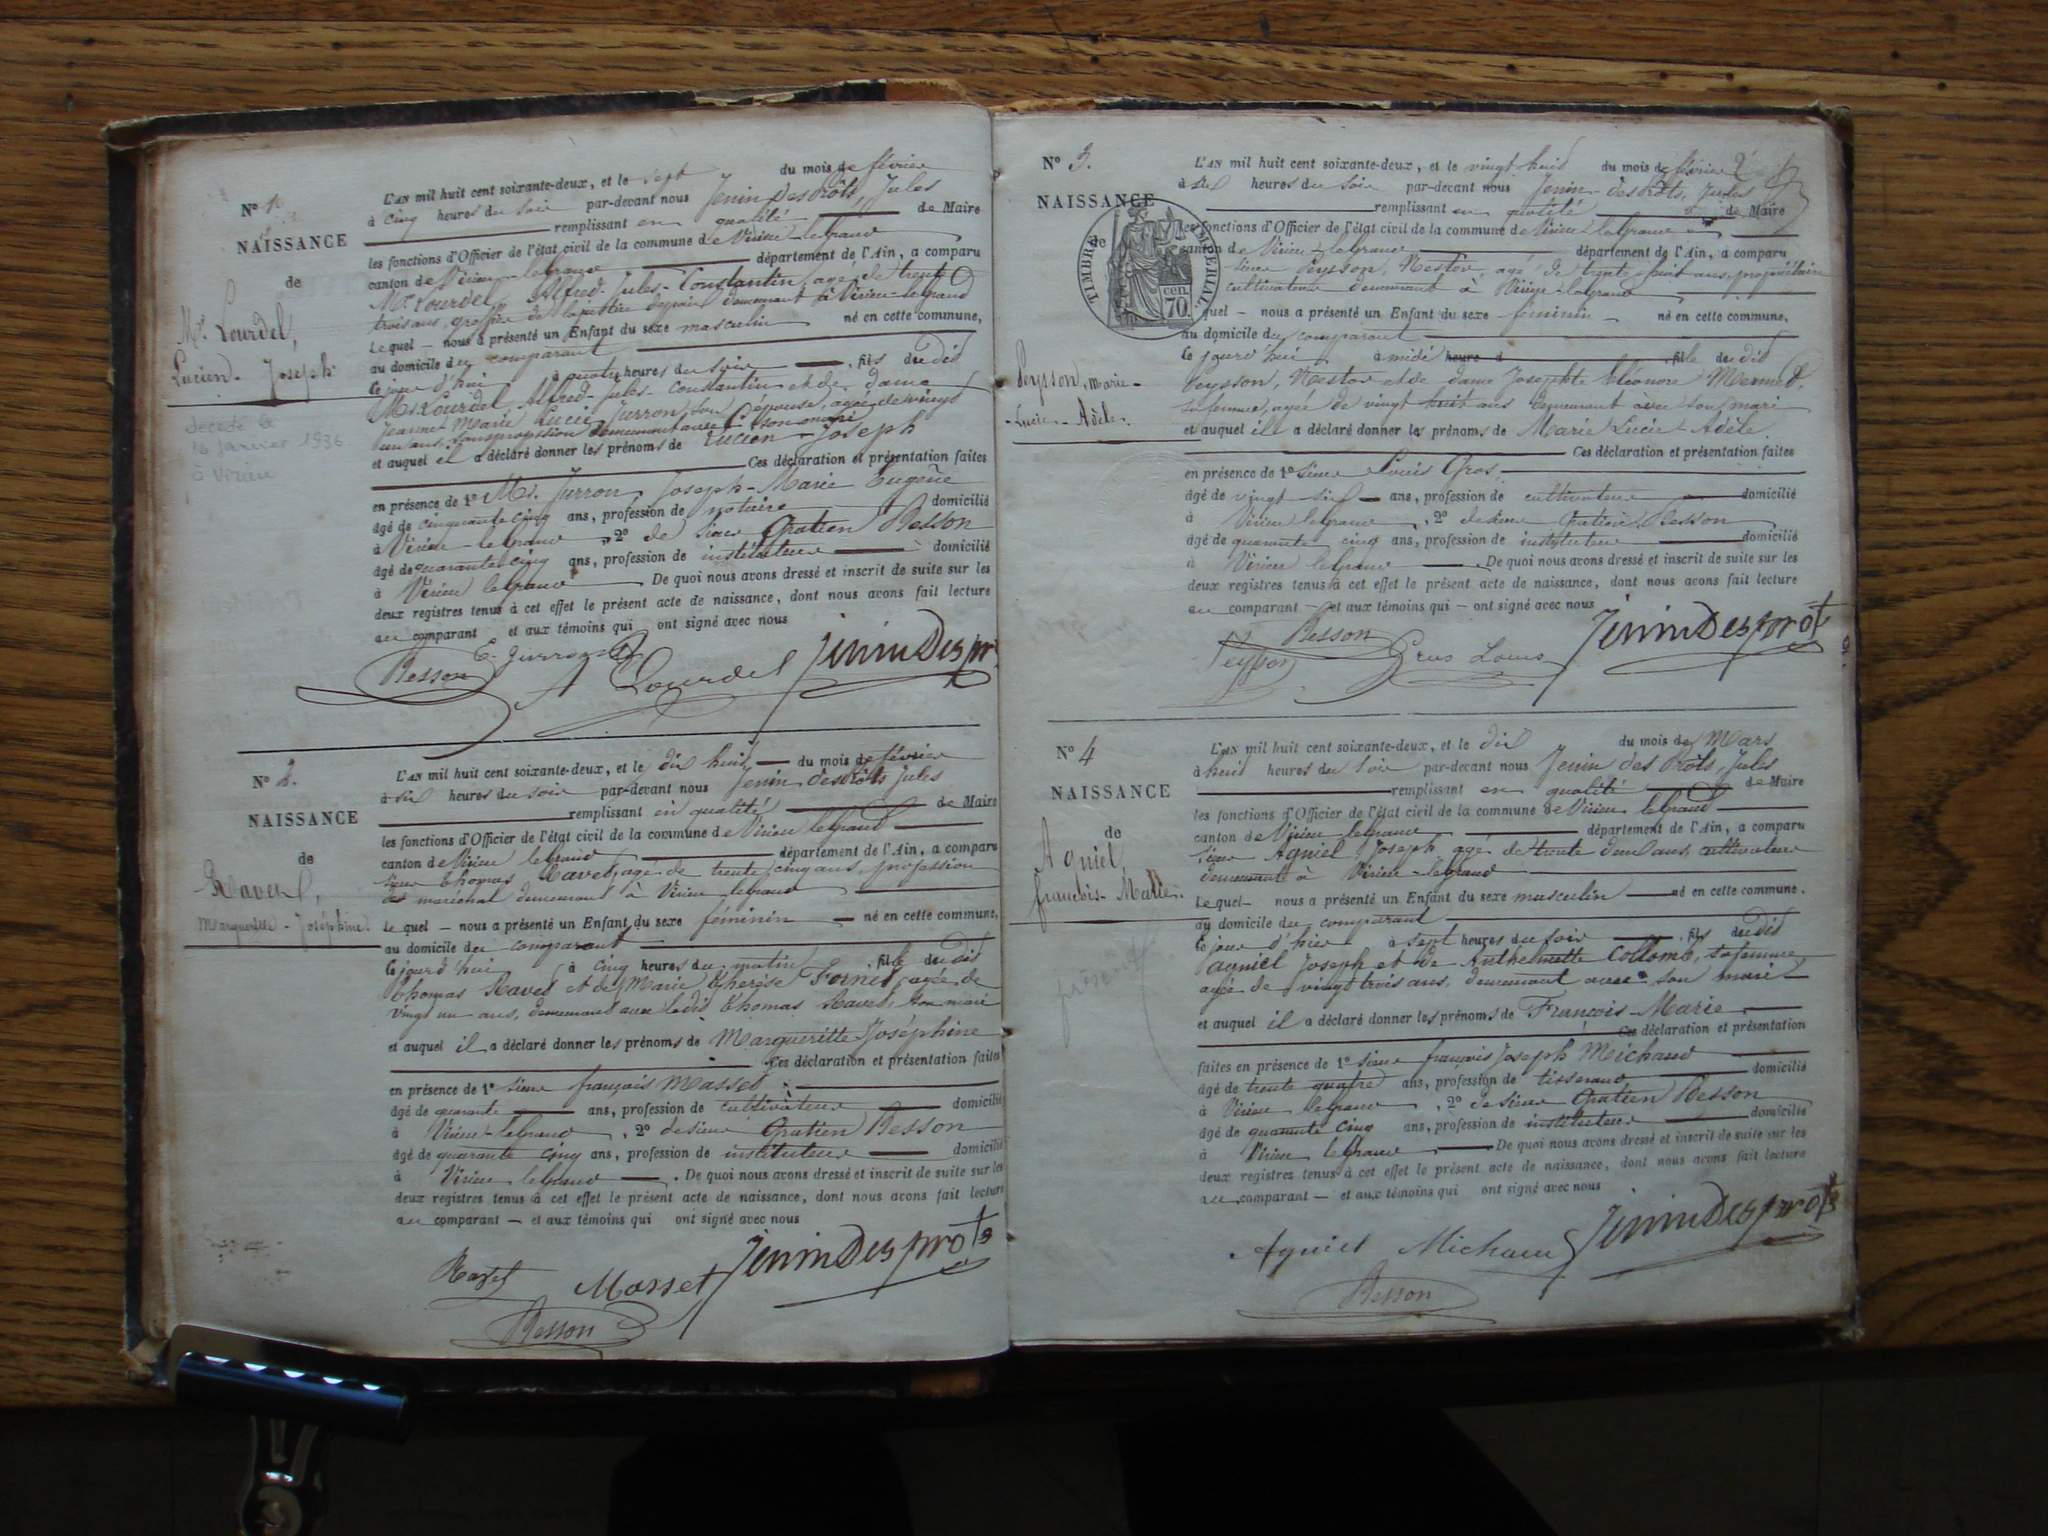 N° 1.
NAISSANCE
de
Mr. Lourdel,
Lucien - Joseph
décédé le
16 janvier 1936
à Virieu
L'AN mil huit cent soixante-deux, et le sept du mois de février
à cinq heures du soir par-devant nous Jenin Desprôts, Jules
remplissant en qualité de Maire
les fonctions d'Officier de l'état civil de la commune de Virieu-legrand
canton de Virieu-legrand département de l'Ain, a comparu
Mr. Lourdel, Alfred-Jules-Constantin, agé de trente
trois ans, greffier de la justice de paix demeurant à Virieu-legrand
Lequel - nous a présenté un Enfant du sexe masculin né en cette commune,
au domicile du comparant
Ce jour d'hui à quatre heures du soir fils dudit
Mr. Lourdel, Alfred-Jules-Constantin et de dame
Jeannet Marie Lucie Jurron, son épouse, agée de vingt
un ans, sans profession demeurant avec son mari
et auquel il a déclaré donner les prénoms de Lucien-Joseph
Ces déclaration et présentation faites
en présence de 1° Mr. Jurron, Joseph-Marie Eugène
âgé de cinquante cinq ans, profession de notaire domicilié
à Virieu-legrand, 2° de sieur Gratien Besson
âgé de quarante cinq ans, profession de instituteur domicilié
à Virieu legrand De quoi nous avons dressé et inscrit de suite sur les
deux registres tenus à cet effet le présent acte de naissance, dont nous avons fait lecture
au comparant et aux témoins qui ont signé avec nous
E. Jurron
Besson A Lourdel JeninDespr
N° 2.
NAISSANCE
de
Ravet,
Marguerite - Joséphine.
L'AN mil huit cent soixante-deux, et le dix huit du mois de février
à six heures du soir par-devant nous Jenin desprôts Jules
remplissant en qualité de Maire
les fonctions d'Officier de l'état civil de la commune de Virieu legrand
canton de Virieu legrand département de l'Ain, a comparu
sieur Thomas Ravet, age de trente cinq ans, profession
de maréchal demeurant à Virieu legrand
Le quel - nous a présenté un Enfant du sexe féminin - né en cette commune,
au domicile du comparant
Ce jourd'hui à cinq heures du matin fille dudit
Thomas Ravet et de Marie Thérèse Fornet, agée de
vingt un ans, demeurant avec ledit Thomas Ravet, son mari
et auquel il a déclaré donner les prénoms de Margueritte Joséphine
Ces déclaration et présentation faites
en présence de 1° sieur françois Masset
âgé de quarante ans, profession de cultivateur domicilié
à Virieu-legrand, 2° de sieur Gratien Besson
âgé de quarante cinq ans, profession de instituteur domicilié
à Virieu legrand. De quoi nous avons dressé et inscrit de suite sur les
deux registres tenus à cet effet le présent acte de naissance, dont nous avons fait lecture
au comparant - et aux témoins qui ont signé avec nous
Ravet Masset JeninDesprots
Besson
N° 3.
NAISSANCE
de
TIMBRE IMPÉRIAL
70 cen.
Peysson, Marie-
Lucie-Adèle.
L'AN mil huit cent soixante-deux, et le vingt huit du mois de février
à six heures du soir par-devant nous Jenin-desprôts, Jules
remplissant en qualité de Maire
les fonctions d'Officier de l'état civil de la commune de Virieu legrand
canton de Virieu-legrand département de l'Ain, a comparu
sieur Peysson, Nestor, agé de trente-huit ans, propriétaire
cultivateur demeurant à Virieu-legrand
quel - nous a présenté un Enfant du sexe feminin né en cette commune,
au domicile du comparant
Ce jourd'hui à midi heure d fille dudit
Peysson, Nestor et de dame Josephte Eléonore Mermet,
sa femme, agée de vingt huit ans demeurant avec son mari
et auquel il a déclaré donner les prénoms de Marie Lucie-Adèle
Ces déclaration et présentation faites
en présence de 1° sieur Louis Gros
âgé de vingt six ans, profession de cultivateur domicilié
à Virieu legrand, 2° de sieur Gratien Besson
âgé de quarante cinq ans, profession de instituteur domicilié
à Virieu legrand. De quoi nous avons dressé et inscrit de suite sur les
deux registres tenus à cet effet le présent acte de naissance, dont nous avons fait lecture
au comparant - et aux témoins qui - ont signé avec nous
Peysson Besson Gros Louis JeninDesprots
N° 4
NAISSANCE
de
Agniel,
françois-Marie.
L'AN mil huit cent soixante-deux, et le dix du mois de Mars
à huit heures du soir par-devant nous Jenin des Prôts, Jules
remplissant en qualité de Maire
les fonctions d'Officier de l'état civil de la commune de Virieu legrand
canton de Virieu legrand département de l'Ain, a comparu
sieur Agniel, Joseph agé de trente deux ans, cultivateur
demeurant à Virieu-legrand
Lequel- nous a présenté un Enfant du sexe masculin né en cette commune.
au domicile du comparant
Ce jour d'hier à sept heures du soir fils dudit
agniel Joseph et de Anthelmette Collomb, sa femme
agée de vingt trois ans, demeurant avec son mari
et auquel il a déclaré donner les prénoms de François-Marie
Ces déclaration et présentation
faites en présence de 1° sieur françois Joseph Michaud
âgé de trente quatre ans, profession de tisserand domicilié
à Virieu legrand, 2° de sieur Gratien Besson
âgé de quarante cinq ans, profession de instituteur domicilié
à Virieu legrand De quoi nous avons dressé et inscrit de suite sur les
deux registres tenus à cet effet le présent acte de naissance, dont nous avons fait lecture
au comparant - et aux témoins qui ont signé avec nous
Agniel Michaud JeninDesprots
Besson